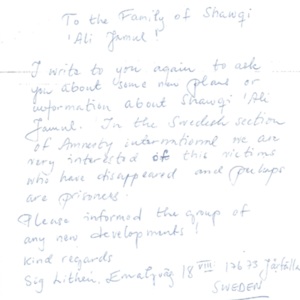 To the Family of Shawqi
'Ali Jamul!
I write to you again to ask
you about some new plans or
information about Shawqi 'Ali
Jamul. In the Swedish section
of Amnesty international we are
very interested of this victims
who have disappeared and perhaps
are prisoners.
Please informed the group of
any new developments!
kind regards
Sig 18 VIII 17673 Järfälla
SWEDEN